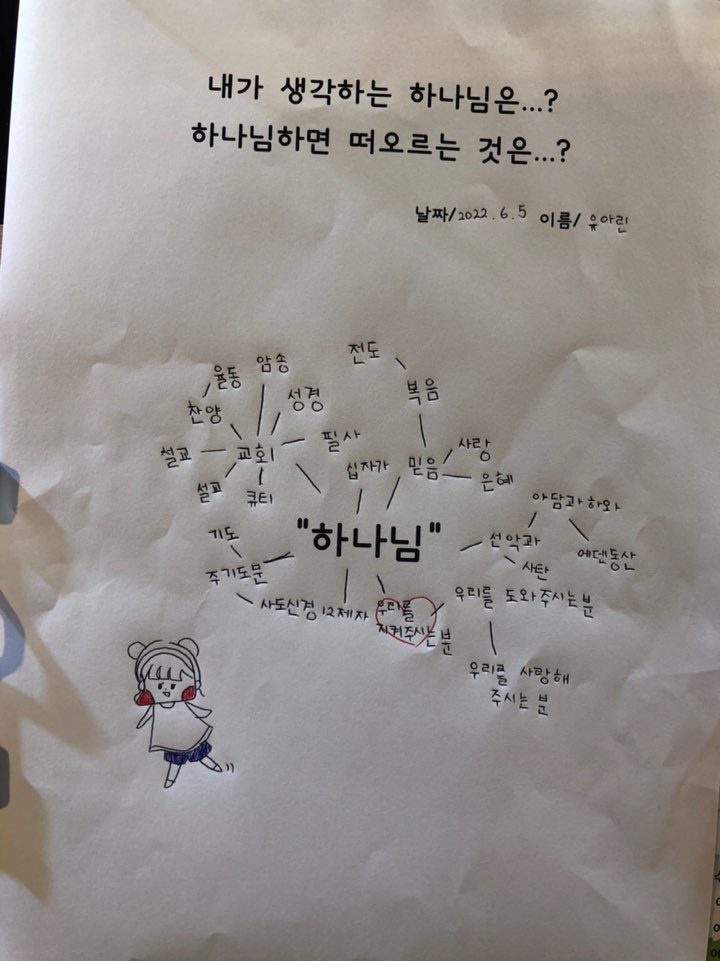 내가 생각하는 하나님은...?
하나님하면 떠오르는 것은...?
날짜/2022.6.5 이름/ 유아린
전도
암송
율동
복음
성경
찬양
사랑
필사
설교
교회
십자가
믿음
은혜
설교
큐티
아담과 하와
기도
"하나님"
선악과
에덴동산
사탄
주기도문
사도신경
12제자
우리를
지켜주시는 분
우리를 도와주시는 분
우리를 사랑해
주시는 분